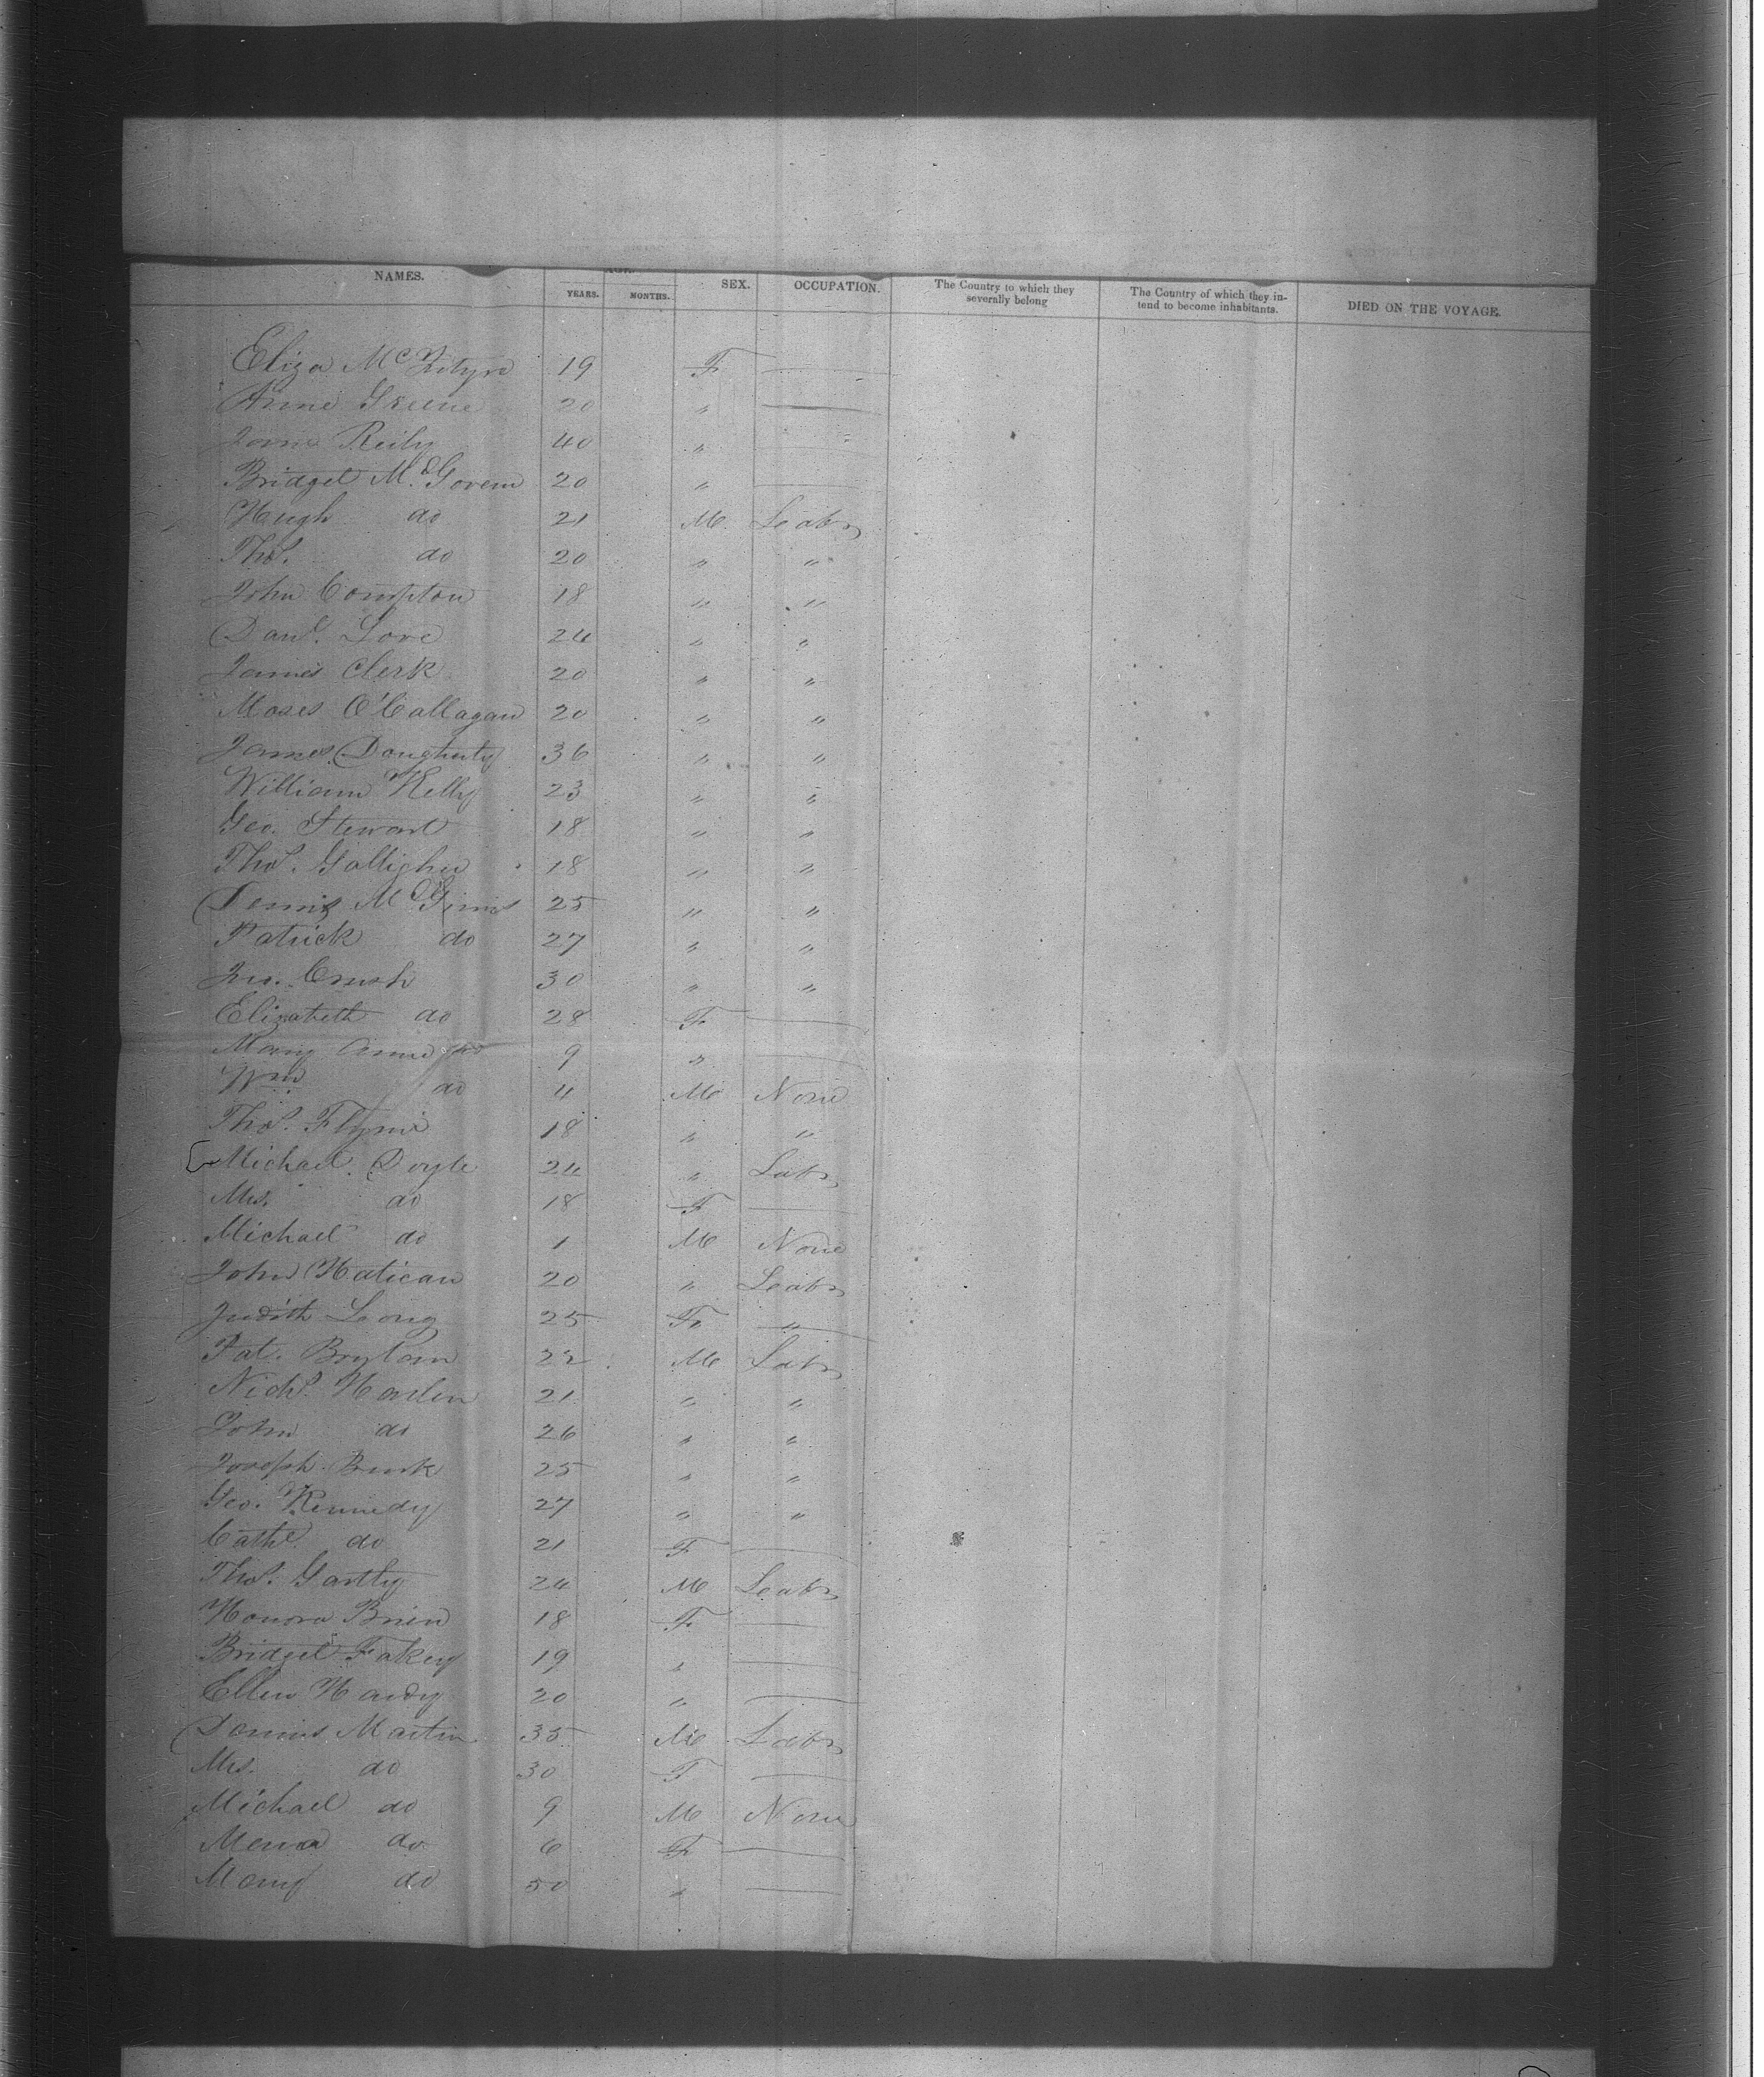 NAMES. AGE. YEARS. MONTHS. SEX. OCCUPATION. The Country to which they severally belong The Country of which they intend to become inhabitants. DIED ON THE VOYAGE.
Eliza McIntyre 19 F —
Anne Greene 20 " —
Jane Reily 40 " —
Bridget McGovern 20 " —
Hugh do 21 M Labr
Thos. do 20 " "
John Compton 18 " "
Danl. Love 24 " "
James Clerk 20 " "
Moses O'Callagan 20 " "
James Dougherty 36 " "
William Kelly 23 " "
Geo. Stewart 18 " "
Thos. Galligher 18 " "
Dennis McGinnis 25 " "
Patrick do 27 " "
Jno. Crush 30 " "
Elizabeth do 28 F —
Mary Anne do 9 " —
Wm do 4 M None
Thos. Flynne 18 " "
Michael Doyle 24 " Labr
Mrs. do 18 F —
Michael do 1 M None
John Halican 20 " Labr
Judith Long 25 F "
Pat. 22 M Labr
Nichs. Harlen 21 " "
John do 26 " "
Joseph Burk 25 " "
Geo. Kennedy 27 " "
Cathe do 21 F —
Thos. Gartly 24 M Labr
Honora Brien 18 F —
Bridget Fakey 19 " —
Ellen Hardy 20 " —
Dennis Martin 35 M Labr
Mrs. do 30 F —
Michael do 9 M None
do 6 F —
Mary do 50 " —